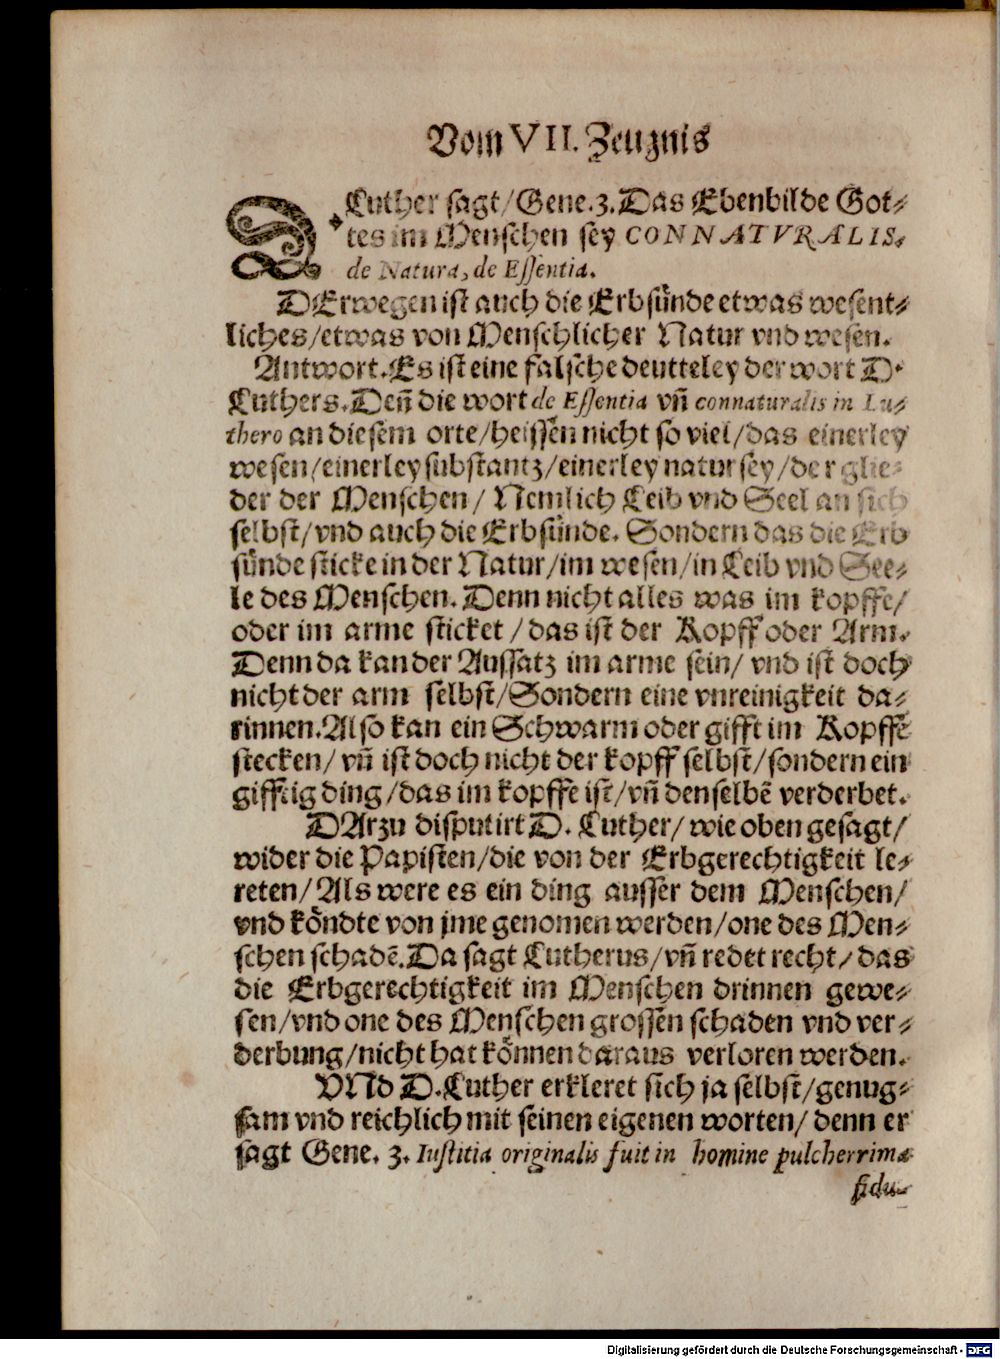 Vom VII. Zeugnis
D. Luther sagt/Gene.3. Das Ebenbilde Got⸗
tes im Menschen sey CONNATVRALIS.
de Natura, de Essentia.
DErwegen ist auch die Erbsünde etwas wesent⸗
liches/etwas von Menschlicher Natur vnd wesen.
Antwort. Es ist eine falsche deutteley der wort D.
Luthers. Deñ die wort de Essentia vñ connaturalis in Lu⸗
thero an diesem orte/heissen nicht so viel/das einerley
wesen/einerley substantz/einerley natur sey/der glie⸗
der der Menschen/ Nemlich Leib vnd Seel an sich
selbst/vnd auch die Erbsünde. Sondern das die Erb
sünde sticke in der Natur/im wesen/in Leib vnd See⸗
le des Menschen. Denn nicht alles was im kopffe/
oder im arme sticket/das ist der Kopff oder Arm.
Denn da kan der Aussatz im arme sein/ vnd ist doch
nicht der arm selbst/Sondern eine vnreinigkeit da⸗
rinnen. Also kan ein Schwarm oder gifft im Kopffe
stecken/ vñ ist doch nicht der kopff selbst/sondern ein
gifftig ding/das im kopffe ist/vñ denselbẽ verderbet.
DArzu disputirt D. Luther/ wie oben gesagt/
wider die Papisten/die von der Erbgerechtigkeit le⸗
reten/Als were es ein ding ausser dem Menschen/
vnd köndte von jme genomen werden/one des Men⸗
schen schadẽ. Da sagt Lutherus/vñ redet recht/das
die Erbgerechtigkeit im Menschen drinnen gewe⸗
sen/vnd one des Menschen grossen schaden vnd ver⸗
derbung/nicht hat können daraus verloren werden.
VNd D. Luther erkleret sich ja selbst/genug⸗
sam vnd reichlich mit seinen eigenen worten/ denn er
sagt Gene. 3. Iustitia originalis fuit in homine pulcherrima
fidu⸗
Digitalisierung gefördert durch die Deutsche Forschungsgemeinschaft - DFG